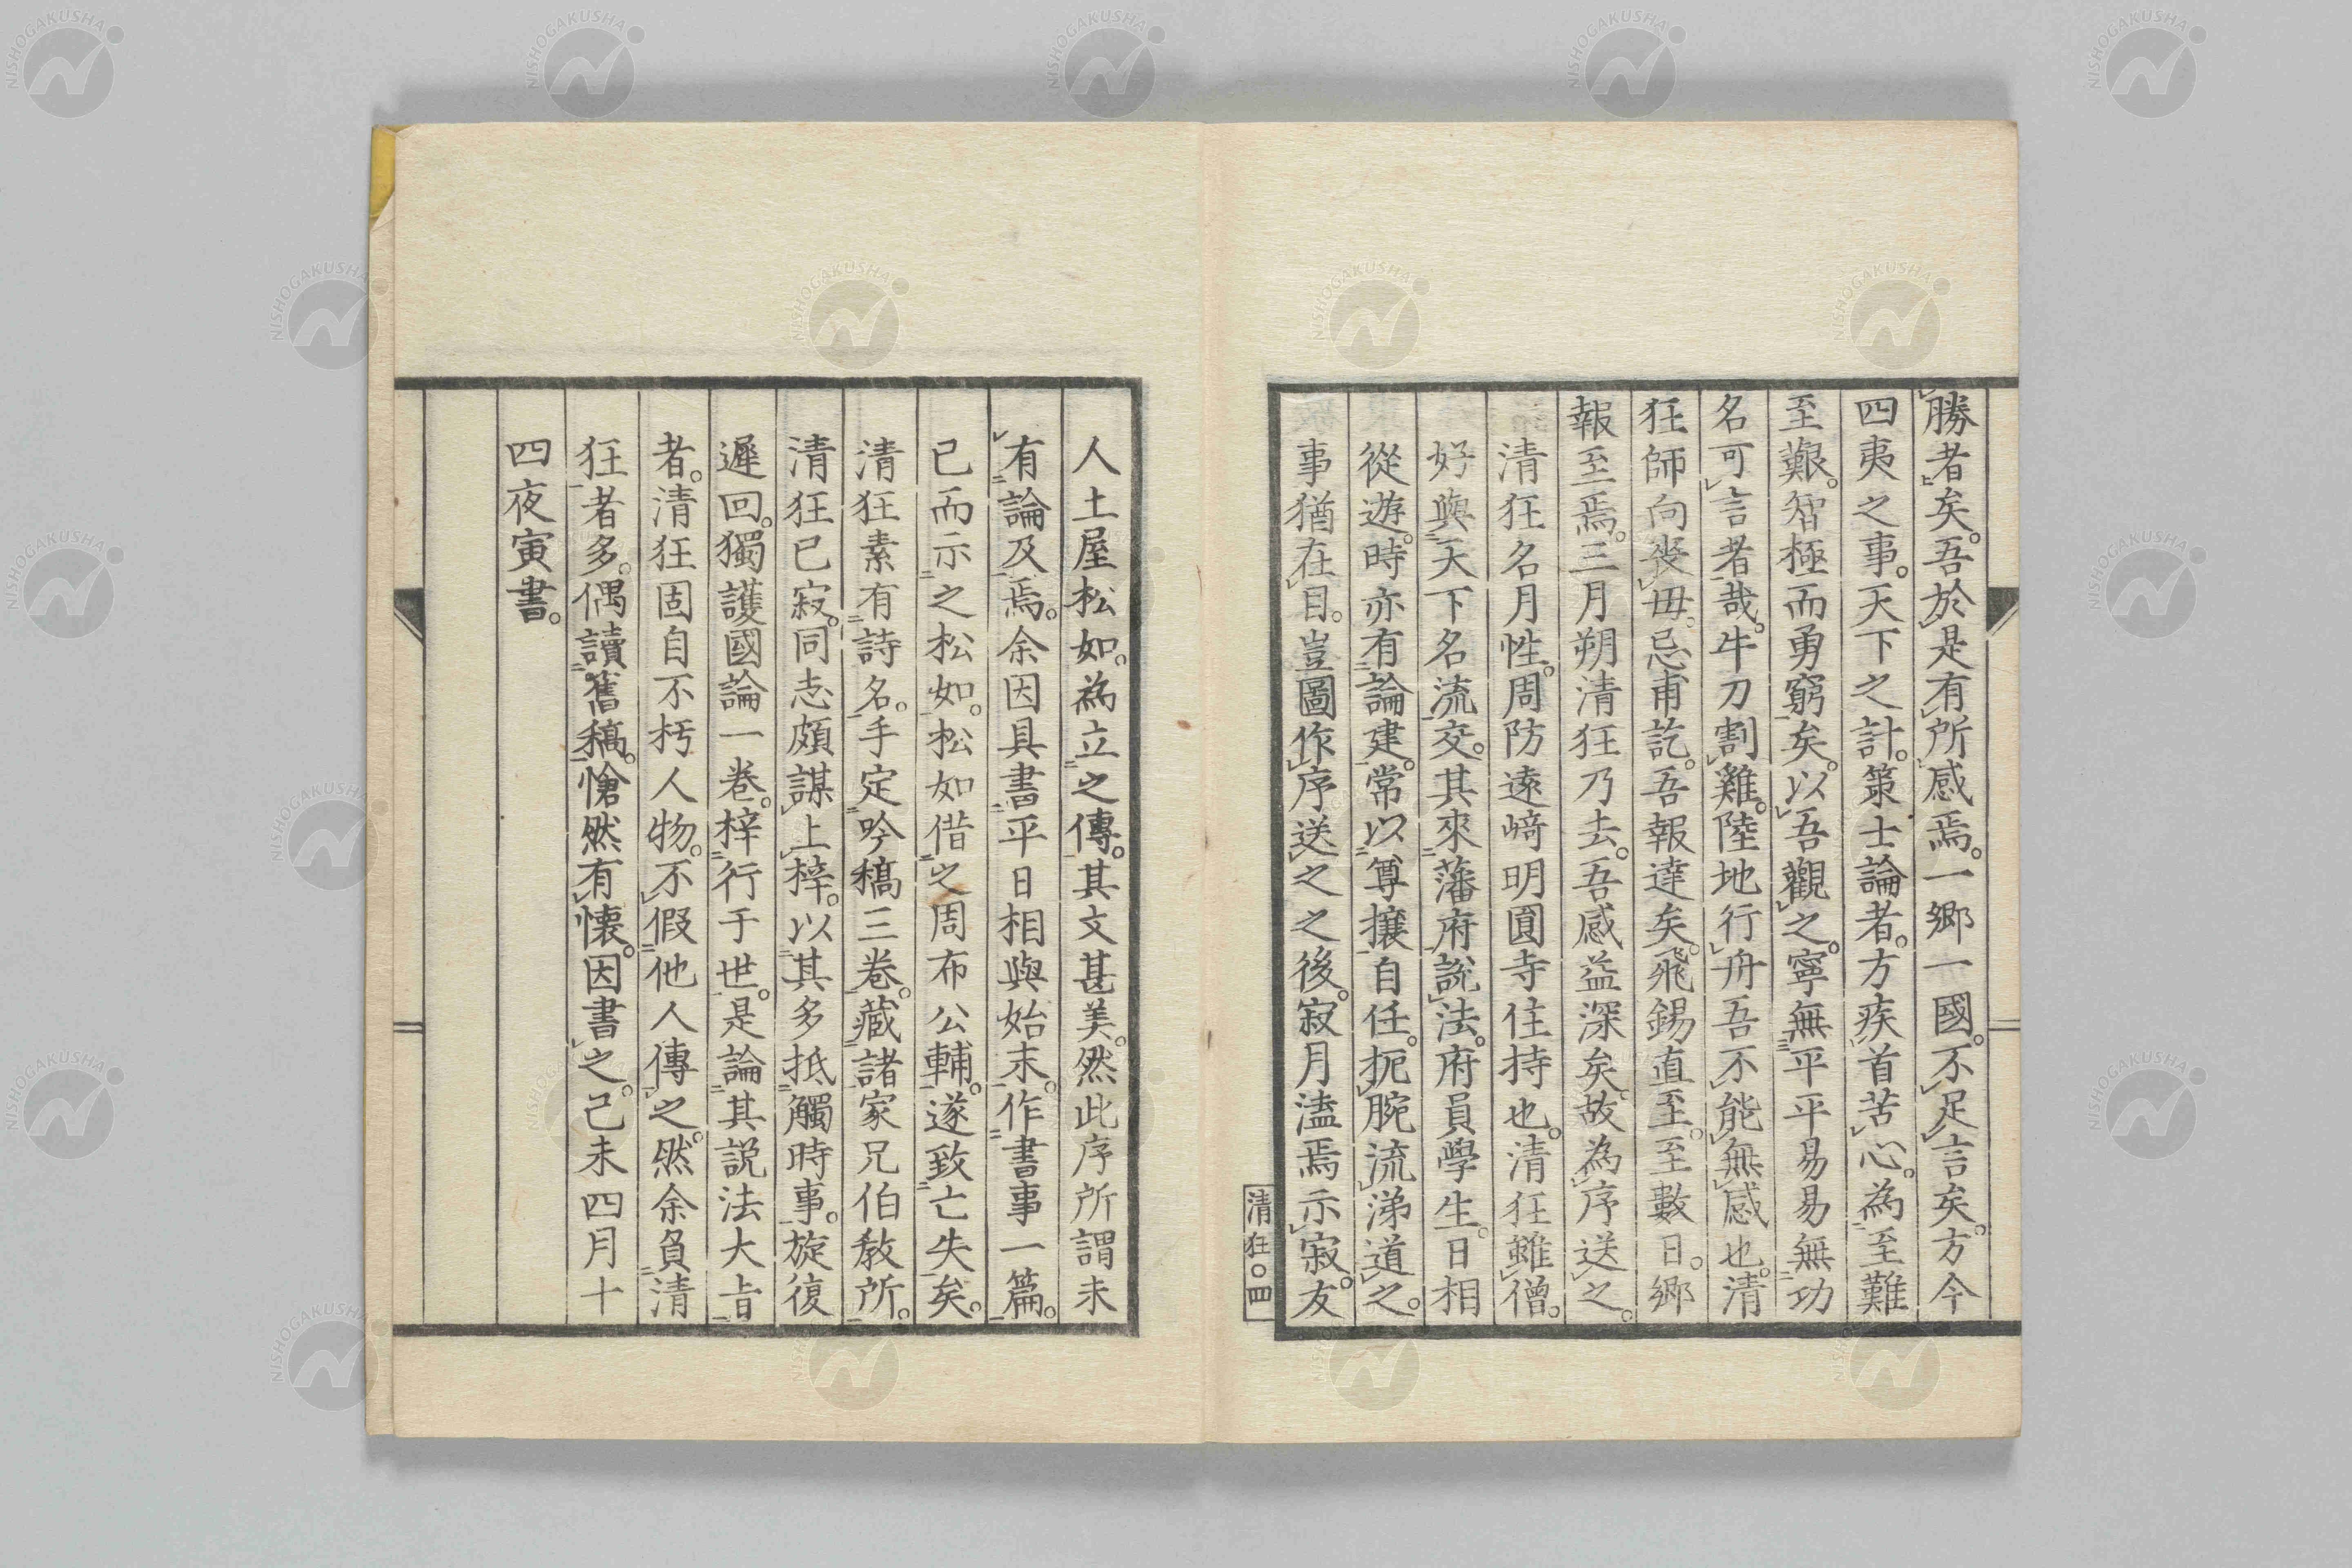 勝者矣。吾於是有所感焉。一鄉一國。不足言矣。方今
四夷之事。天下之計。策士論者。方疾首苦心。為至難
至艱。智極而勇窮矣。以吾觀之。寧無平平易易無功
名可言者哉。牛刀割雞。陸地行舟吾不能無感也。清
狂師向喪毋。忌甫訖。吾報達矣。飛錫直至。至數日。鄉
報至焉。三月朔清狂乃去。吾感益深矣。故為序送之。
清狂名月性。周防遠﨑明圓寺住持也。清狂雖僧。
好與天下名流交。其來藩府說法。府員學生。日相
從遊。時亦有論建。常以尊攘自任。扼腕流涕道之。
事猶在目。豈圖作序送之之後。寂月溘焉示寂。友
清狂〇四
人土屋松如。為立之傳。其文甚美。然此序所謂未
有論及焉。余因具書平日相與始末。作書事一篇。
已而示之松如。松如借之周布公輔。遂致亡失矣。
清狂素有詩名。手定吟稿三卷。藏諸家兄伯敎所。
清狂已寂。同志頗謀上梓。以其多抵觸時事。旋復
遲回。獨護國論一卷。梓行于世。是論其説法大㫖
者。清狂固自不朽人物。不假他人傳之。然余負清
狂者多。偶讀舊稿。愴然有懷。因書之。己未四月十
四夜寅書。
NISHOGAKUSHA